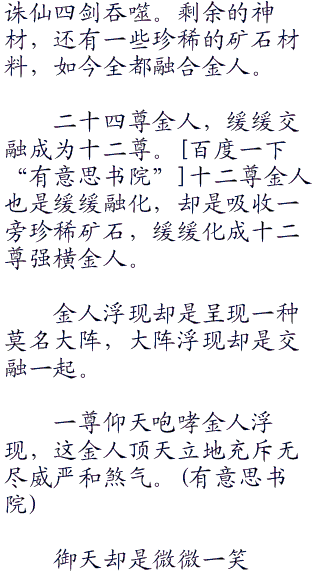 诛仙四剑吞噬。剩余的神
材，还有一些珍稀的矿石材
料，如今全都融合金人。
二十四尊金人，缓缓交
融成为十二尊。[百度一下
“有意思书院”]十二尊金人
也是缓缓融化，却是吸收一
旁珍稀矿石，缓缓化成十二
尊强横金人。
金人浮现却是呈现一种
莫名大阵，大阵浮现却是交
融一起。
一尊仰天咆哮金人浮
现，这金人顶天立地充斥无
尽威严和煞气。(有意思书
院)
御天却是微微一笑